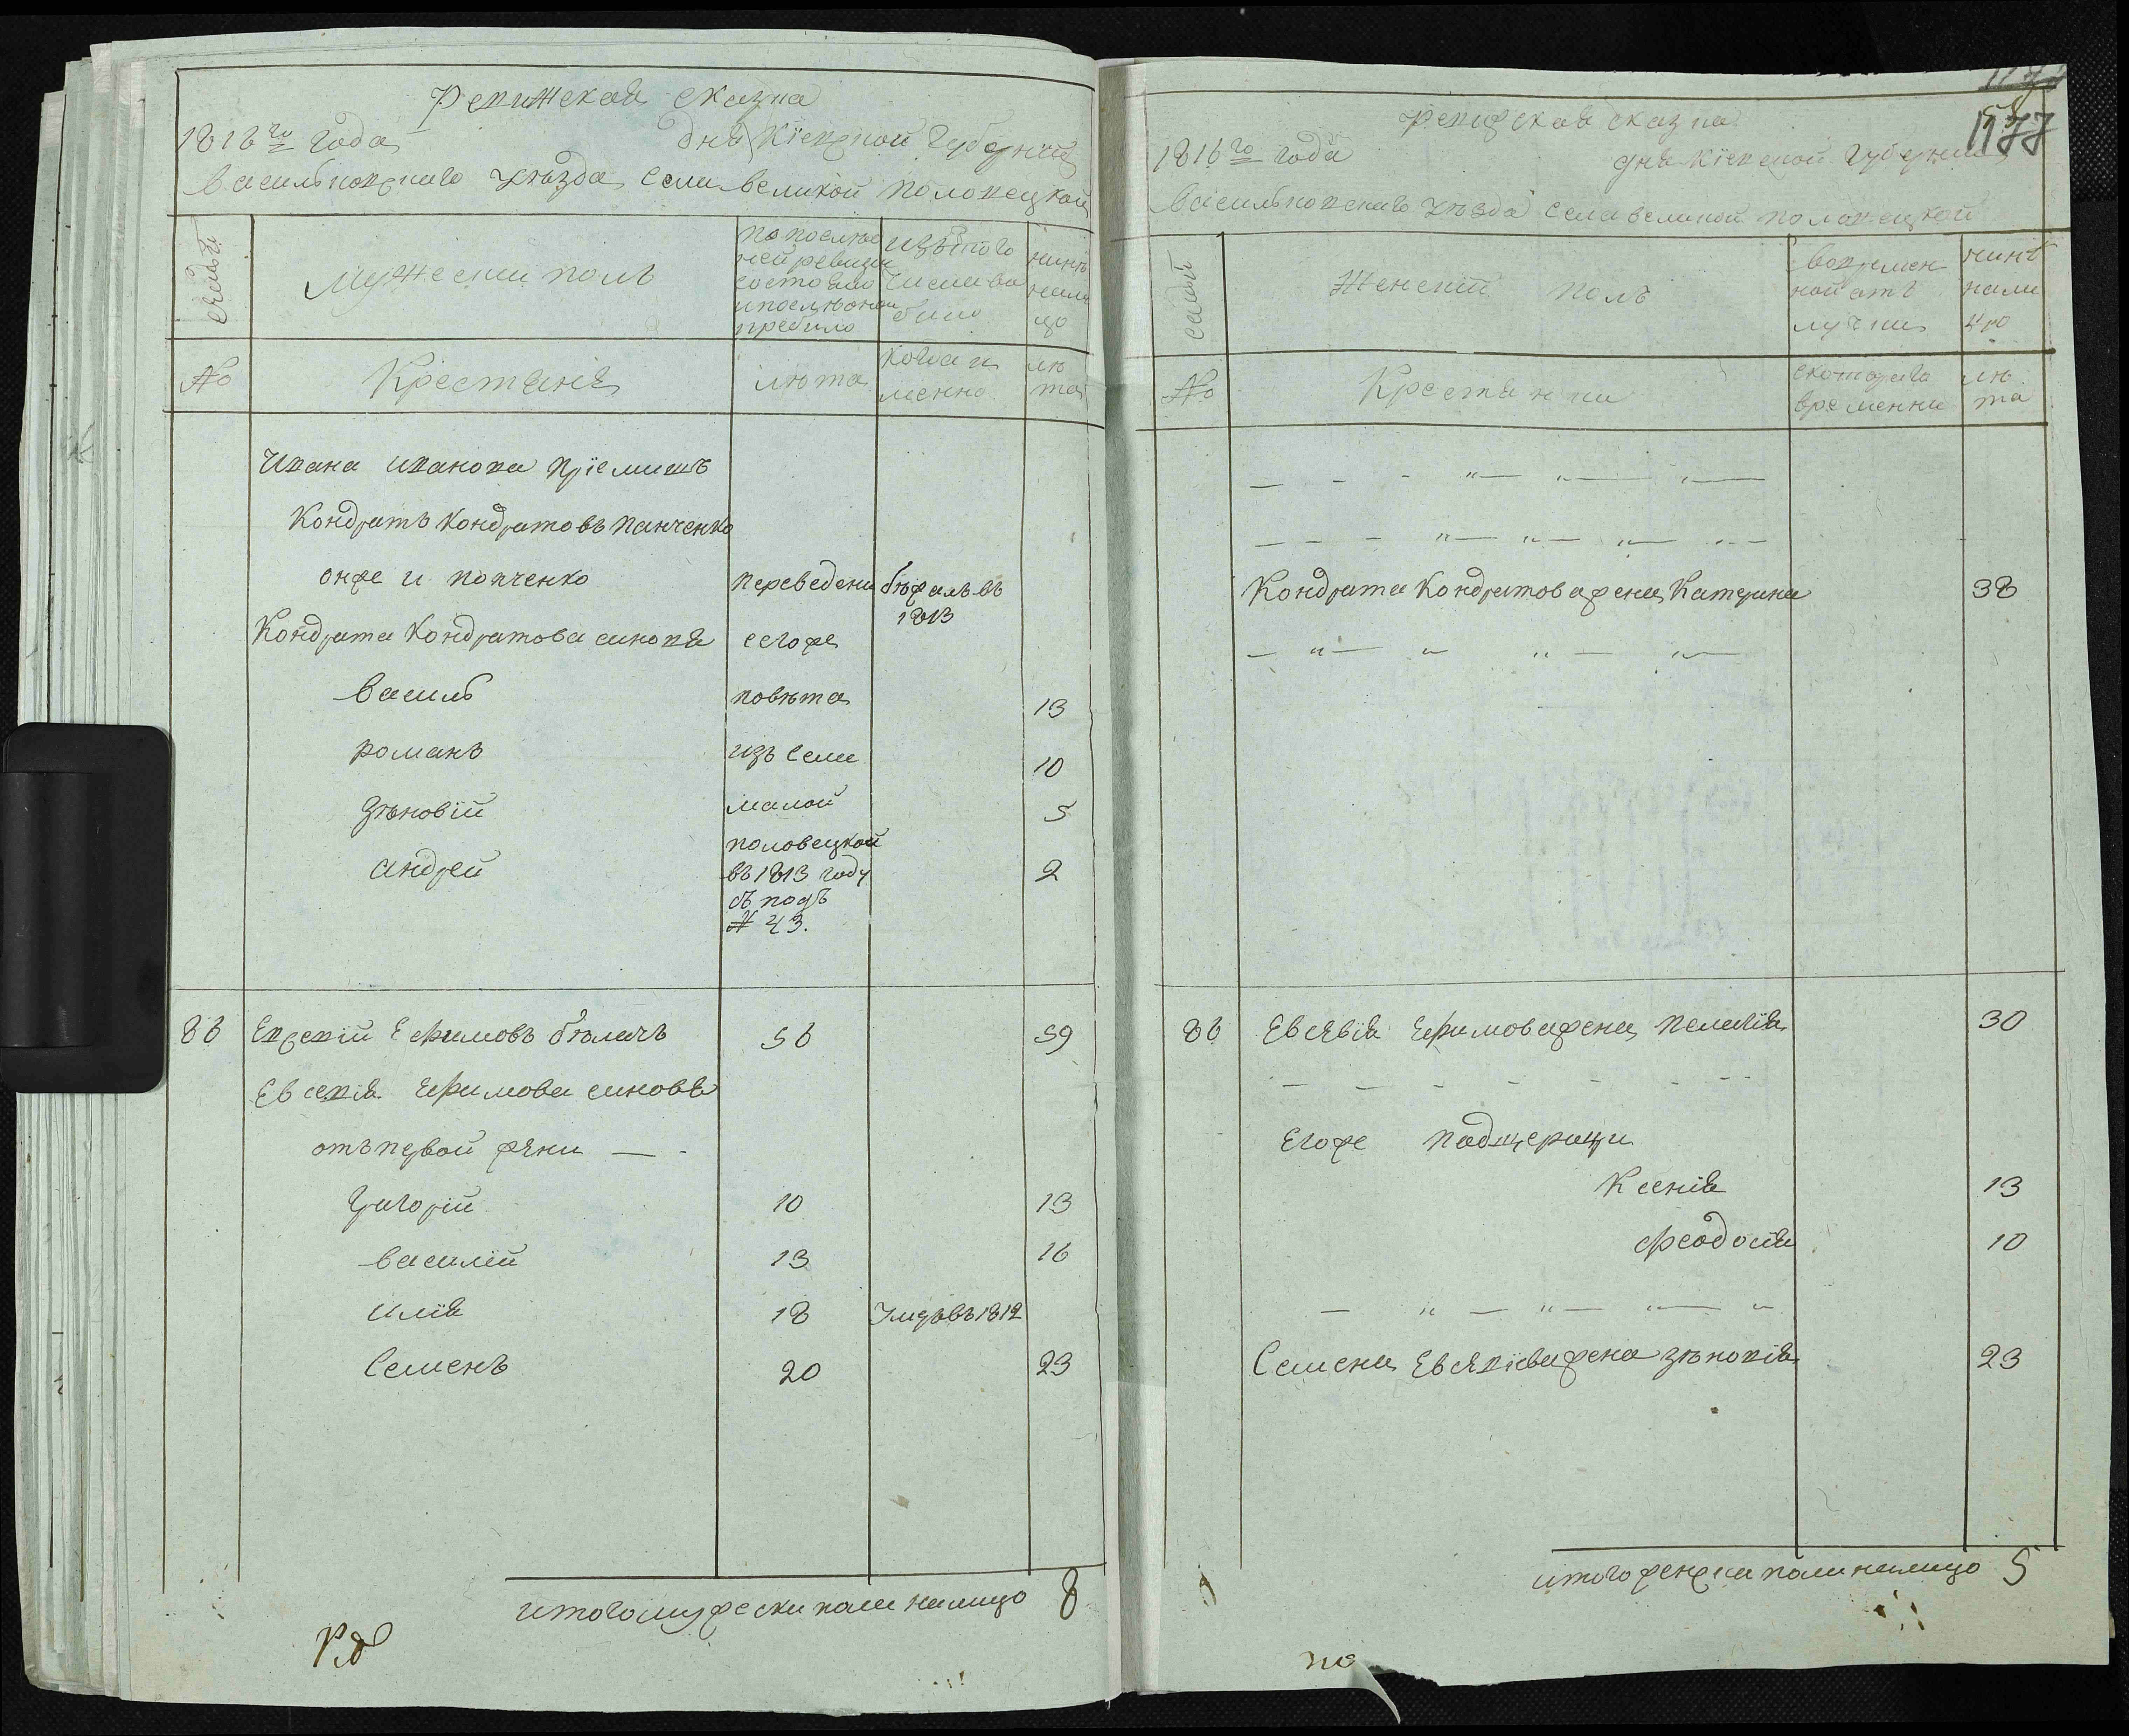 Ревижская сказка
1816го года дня Кіевской Губерніи
Васильковскаго уѣзда села великой половецкой
семьи
мужески полъ
По послѣд
ней ревизіи
состояло
и послѣ оной
прибыло
изътого
числа вы
было
нинѣ
нали
цо
№
Крестяня
лѣта
когда и
менно
лѣ
та
Ивана иванова пріемишъ
Кондратъ Кондратовъ панченко
онже и попченко
переведени
бѣжалъ въ
1813
Кондрата Кондратова синовя
сегоже
Василь
повѣта
13
романъ
изъ села
10
Зѣновій
малой
5
половецкой
андрей
въ 1813 году
2
съ подъ
№ 43.
86 Евсевій Ефимовъ бѣличъ 56 59
Евсевія Ефимова синовя
отъ первой жени
Григорій 10 13
василій 13 16
илія 18 Умеръ въ 1812
Семенъ 20 23
итого мужески пола налицо 8
177
Ревижская сказка
1816го года дня Кіевской Губерніи
Васильковскаго уѣзда села великой половецкой
семьи
Женскій полъ
вовремен
ной отъ
лучки
нинѣ
нали
цо
№
Крестянки
скотораго
времени
лѣ
та
Кондрата Кондратова жена Катерина 38
86 Евсевія Ефимова жена Пелагія 30
Егоже падщерици
Ксенія 13
Феодосія 10
Семена Евсевіева жена зѣновія 23
итого женска пола налицо 5
по